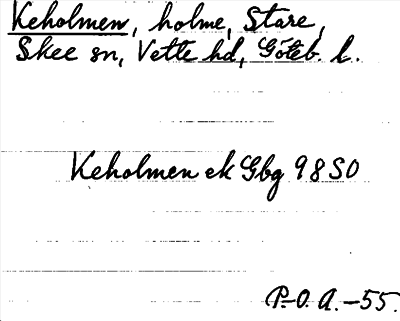 Keholmen, holme, Stare,
Skee sn, Vette hd, Göteb. l.
Keholmen ek Gbg 9850
P.-O. A. -55.